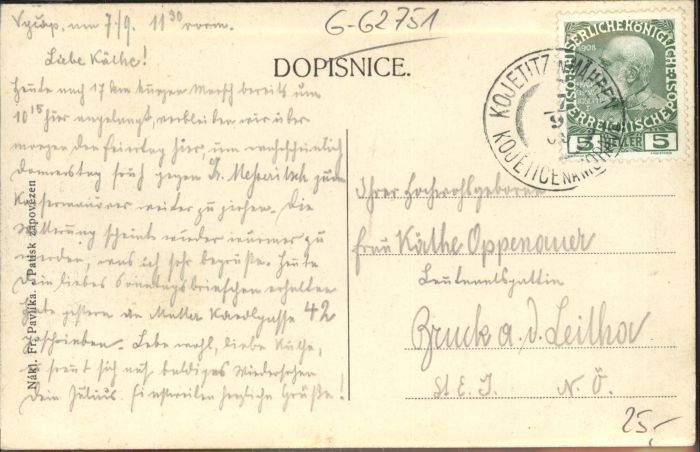 G-G2751
7./9. 11 30 vorm.
Liebe Käthe!
Heute nach 17 km kurzen Marsch bereits um
10 15 hier angelangt, verbleiben wir über
morgen den Feiertag hier, um wahrscheinlich
Donnerstag früh gegen Gr. Meseritsch zu den
Kaisermanöver weiter zu ziehen. Die
Witterung scheint wieder wärmer zu
werden, was ich sehr begrüße. Heute
Dein liebes Sonntagsbriefchen erhalten
Habe gestern an Mutter 42
geschrieben. Lebe wohl, liebe Käthe,
es freut sich auf baldiges Wiedersehen
Dein Julius. Einstweilen herzliche Grüße!
DOPISNICE.
Nákl. Fr. Pavlíka. - Patisk zapovězen
KAISERLICHE KÖNIGLICHE
ÖSTERREICHISCHE POST
1908
5 HELLER 5
KOJETITZ MÄHREN
KOJETICE NA MOR
Ihrer Hochwohlgeboren
Frau Käthe Oppenauer
Leutnantsgattin
Bruck a. d. Leitha
St. E. G. N. Ö.
25,-